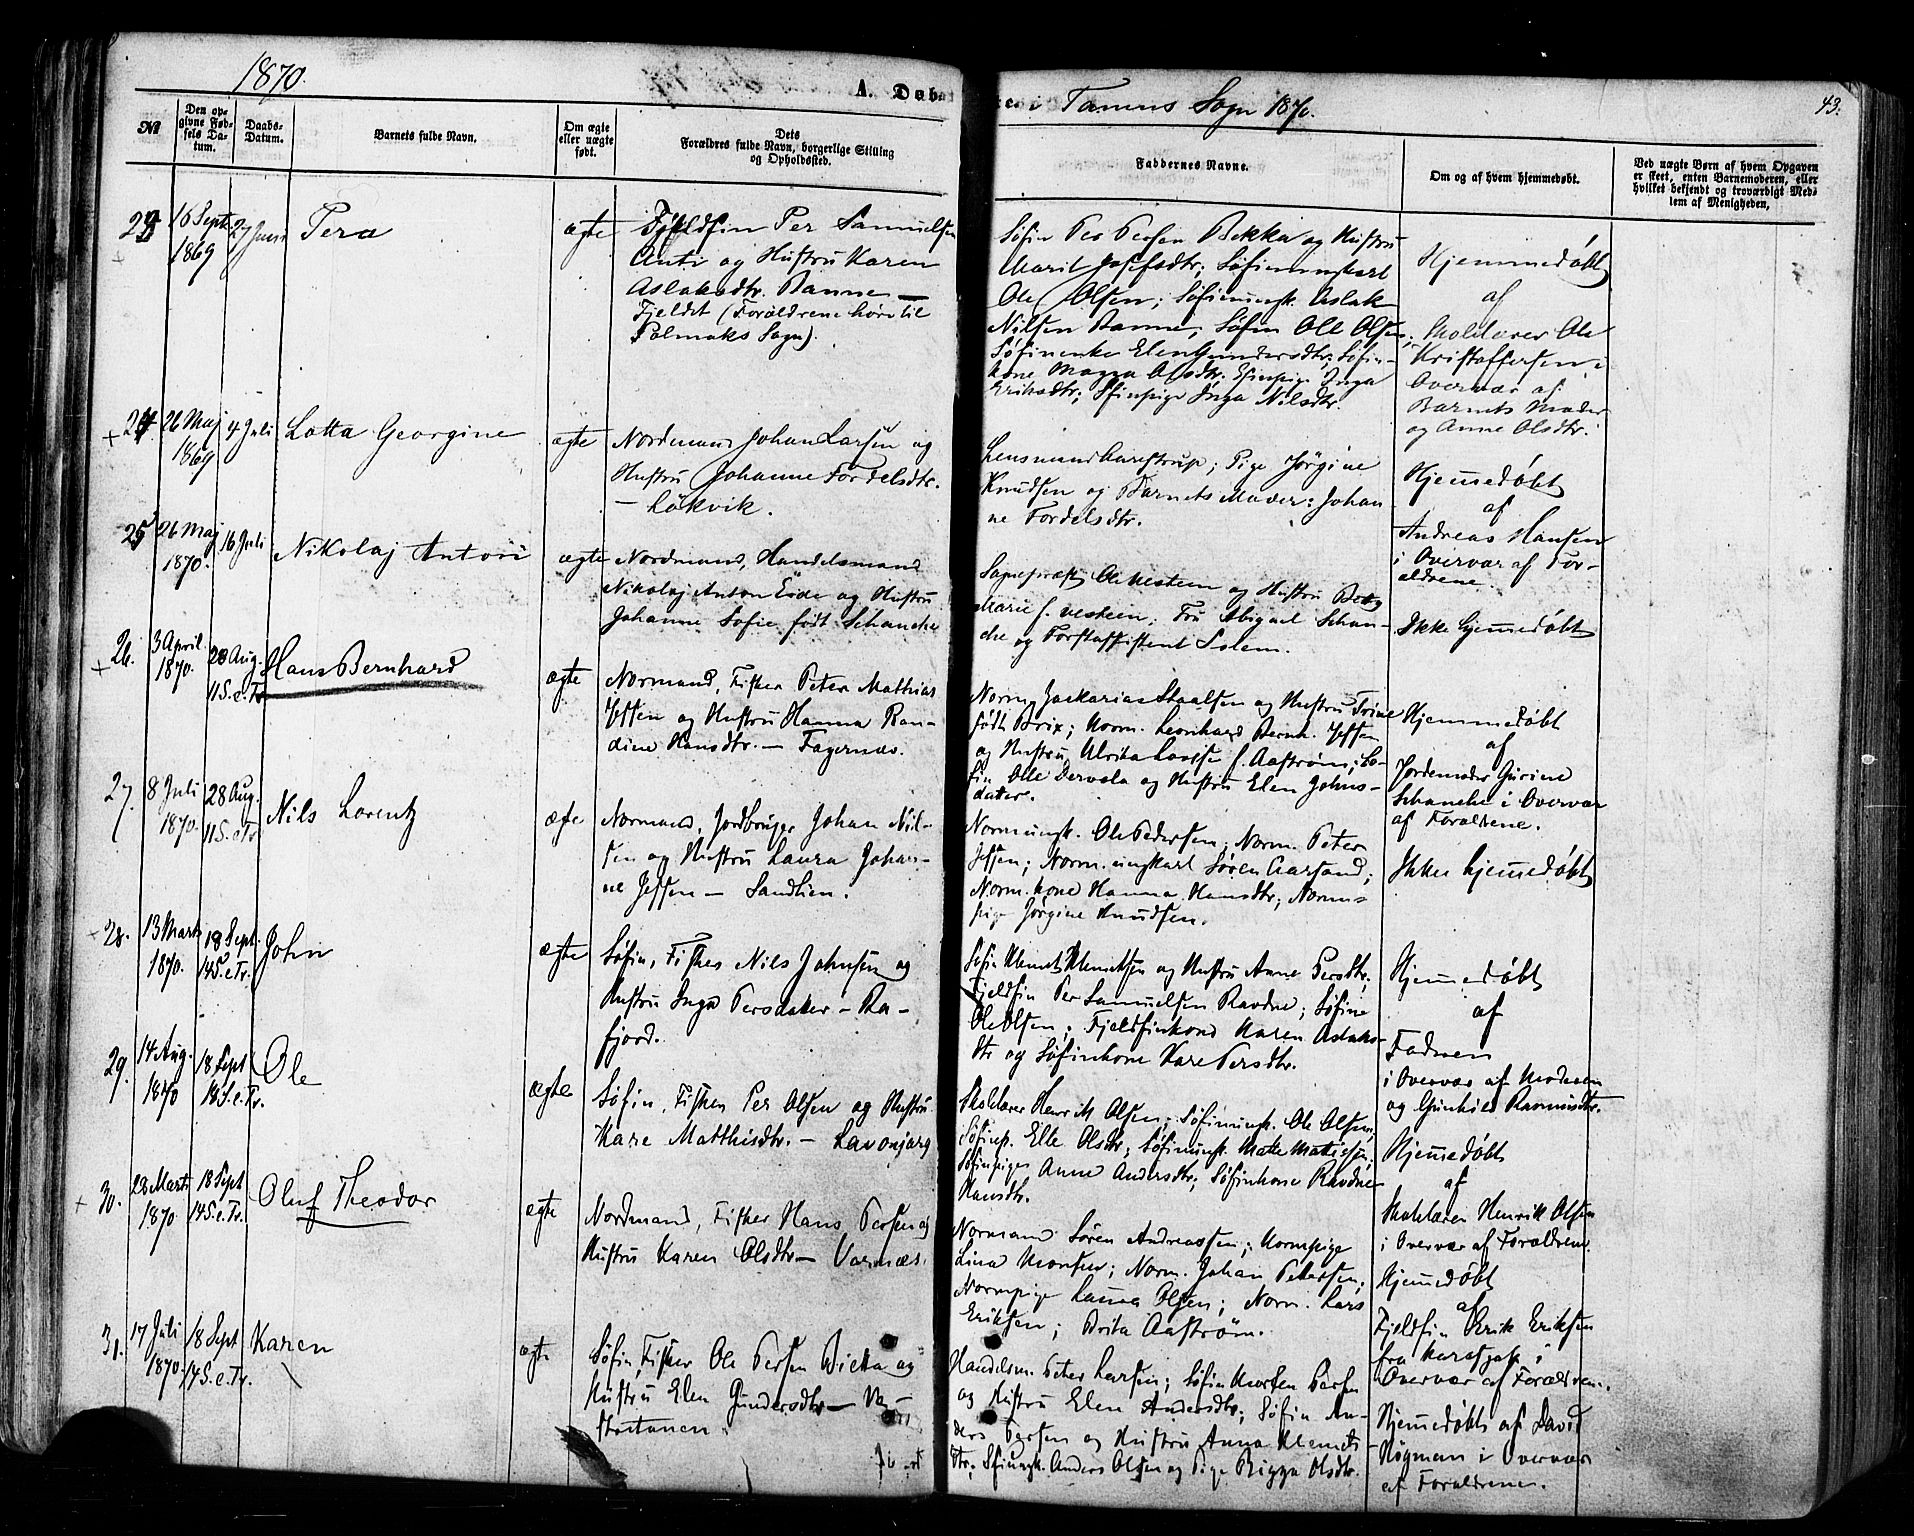 1870.
A. Døbe
te. i Tanens Sogn 1870.
43.
№
Den opgivne Fødsels Datum.
Daabs-Datum.
Barnets fulde Navn.
Om ægte eller uægte født.
Dets Forældres fulde Navn, borgerlige Stilling og Opholdssted.
Faddernes Navne.
Om og af hvem hjemmedøbt.
Ved uægte Børn af hvem Opgaven er skeet, enten Barnemoderen, eller hvilket bekjendt og troværdigt Medlem af Menigheden.
23
16 Sept. 1869
27 Juni
Pera
ægte
Fjeldfin Per Samuelsen
Anti og Hustru Karen
Aslaksdtr. Banne —
Fjeldet (Forældrene høre til
Polmaks Sogn).
Søfin Per Persen Bekka og Hustru
Marit Josefsdtr; Søfinungkarl
Ole Olsen; Søfinungk. Aslak
Nilsen Banne, Søfin Ole Olsen;
Søfinenke Elen Gundersdtr; Søfin-
kone Magga Olsdtr. Sfinpige Inga
Eriksdtr; Sfinpige Inga Nilsdtr.
Hjemmedøbt
af
Skolelærer Ole
Kristoffersen i
Overvær af
Barnets Moder
og Anne Olsdtr.
24.
26 Maj 1869
4 Juli
Lotta Georgine
ægte
Nordmand Johan Larsen og
Hustru Johanne Fordelsdtr.
— Løkvik.
Lensmand Karstrup; Pige Jørgine
Knudsen og Barnets Moder: Johan
ne Fordelsdtr.
Hjemmedøbt
af
Andreas Hansen
i Overvær af For-
ældrene.
25
26 Maj 1870.
16 Juli
Nikolaj Anton
ægte
Nordmand, Handelsmand
Nikolaj Anton Eide og Hustru
Johanne Sofie født Schanche
Sognepræst Ole Vesteen og Hustru
Marie f. Vesteen; Fru Abigael Schan-
che og Forstassistent Solem.
Ikke hjemmedøbt
26.
3 April. 1870.
28 Aug. 11 S. e. Tr.
Hans Bernhard
ægte
Normand, Fisker Peter Mathias
Jessen og Hustru Hanna Ran-
dine Hansdtr. — Fagernæs.
Norm. Zakarias Staalsen og Hustru Trine
født Brix; Norm. Leonhard Bernh. Jessen
og Hustru Ulrika Lovise f. Aastrøm; Sø-
fin Olle Dervola og Hustru Elen Johns-
datter.
Hjemmedøbt
af
Jordemoder Gurine
Schanche i Overvær
af Forældrene.
27.
8 Juli 1870.
28 Aug. 11 S. e. Tr.
Nils Lorentz
ægte
Normand, Jordbruger Johan Nil-
sen og Hustru Laura Johan-
ne Jessen — Sandlien.
Normungk. Ole Pedersen; Norm. Peter
Jessen; Norm. ungkarl Søren Aarsand;
Norm. kone Hanna Hansdtr; Norm-
pige Jørgine Knudsen.
Ikke hjemmedøbt
28.
13 Marts 1870.
18 Sept. 14 S. e. Tr.
John
ægte
Søfin, Fisker Nils Johnsen og
Hustru Inga Persdatter — Ra-
fjord.
Søfin Klemet Klemetsen og Hustru Anne Persdtr;
Fjeldfin Per Samuelsen Ravdne; Søfin
Ole Olsen; Fjeldfinkone Karen Aslaks-
dtr og Søfinkone Kare Persdtr.
Hjemmedøbt
af
Fadren
i Overvær af Moderen
og Gunhild Rasmusdtr.
29.
14 Aug. 1870
18 Sept 14 S. e. Tr.
Ole
ægte
Søfin, Fisker Per Olsen og Hustru
Kare Matthisdtr. — Lavonjarg
Skolelærer Henrik Olsen; Søfinungk. Ole Olsen,
Søfinp. Elle Olsdtr; Søfinungk. Matte Mathisen;
Søfinpige Anne Andersdtr; Søfinkone Ravdne
Hansdtr.
Hjemmedøbt
af
Skolelærer Henrik Olsen
i Overvær af Forældrene.
30.
28 Marts 1870
18 Sept 14 S. e. Tr.
Oluf Theodor
ægte
Nordmand, Fisker Hans Persen og
Hustru Karen Olsdtr — Varnæs.
Normand Søren Andreassen; Normpige
Lina Monsen; Norm. Johan Petersen;
Normpige Laura Olsen; Norm. Lars
Eriksen; Brita Aastrøm.
Hjemmedøbt
af
Fjeldfin Erik Eriksen
fra Karasjok i
Overvær af Forældrene.
31.
17 Juli 1870.
18 Sept 14 S. e. Tr.
Karen
ægte
Søfin, Fisker Ole Persen Biekka og
Hustru Elen Gundersdtr —
Handelsm. Peter Larsen; Søfin Morten Persen
og Hustru Elen Andersdtr; Søfin An-
ders Persen og Hustru Anna Klemets-
dtr; Sfinungk. Anders Olsen og Pige Bigga Olsdtr.
Hjemmedøbt af David
Høgman i Overvær
af Forældrene.